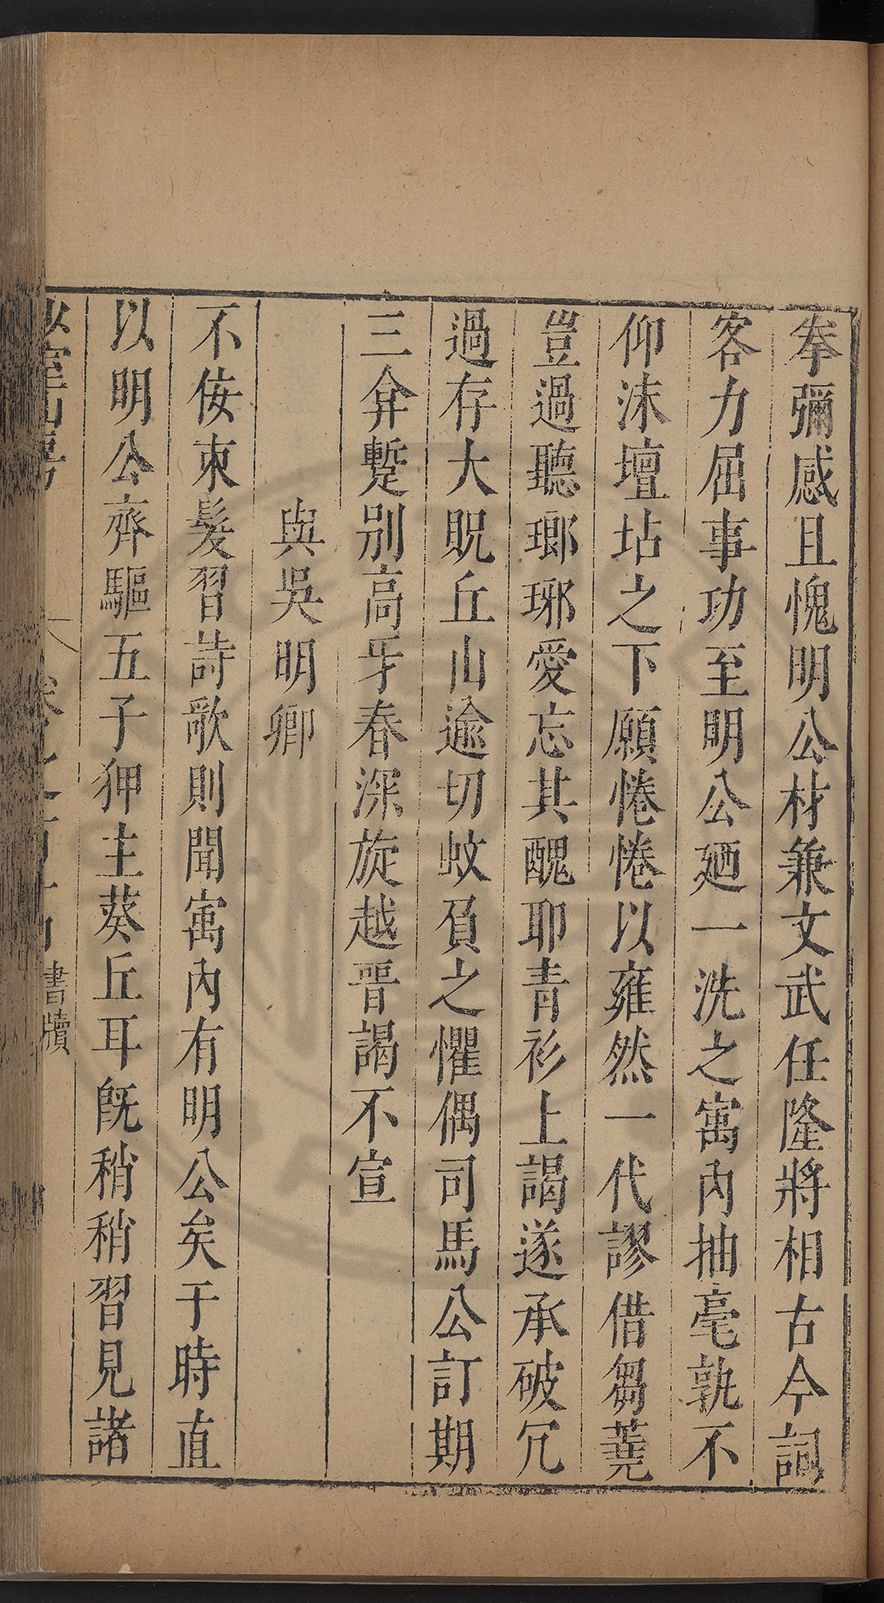 拳彌感且愧明公材兼文武任隆將相古今詞
客力屈事功至明公廼一洗之寓內抽毫孰不
仰沫壇坫之下願惓惓以雍然一代謬借芻蕘
豈過聽瑯琊愛忘其醜耶青衫上謁遂承破冗
過存大貺丘山逾切蚊負之懼偶司馬公訂期
三弇蹔別高牙春深旋越晋謁不宣
與吳明卿
不佞束髮習詩歌則聞寓內有明公矣于時直
以明公齊驅五子狎主葵丘耳旣稍稍習見諸
少室山房
卷之百十
書牘